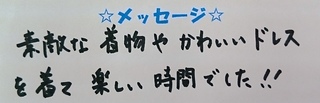 ☆メッセージ☆
素敵な着物やかわいいドレス
を着て楽しい時間でした!!